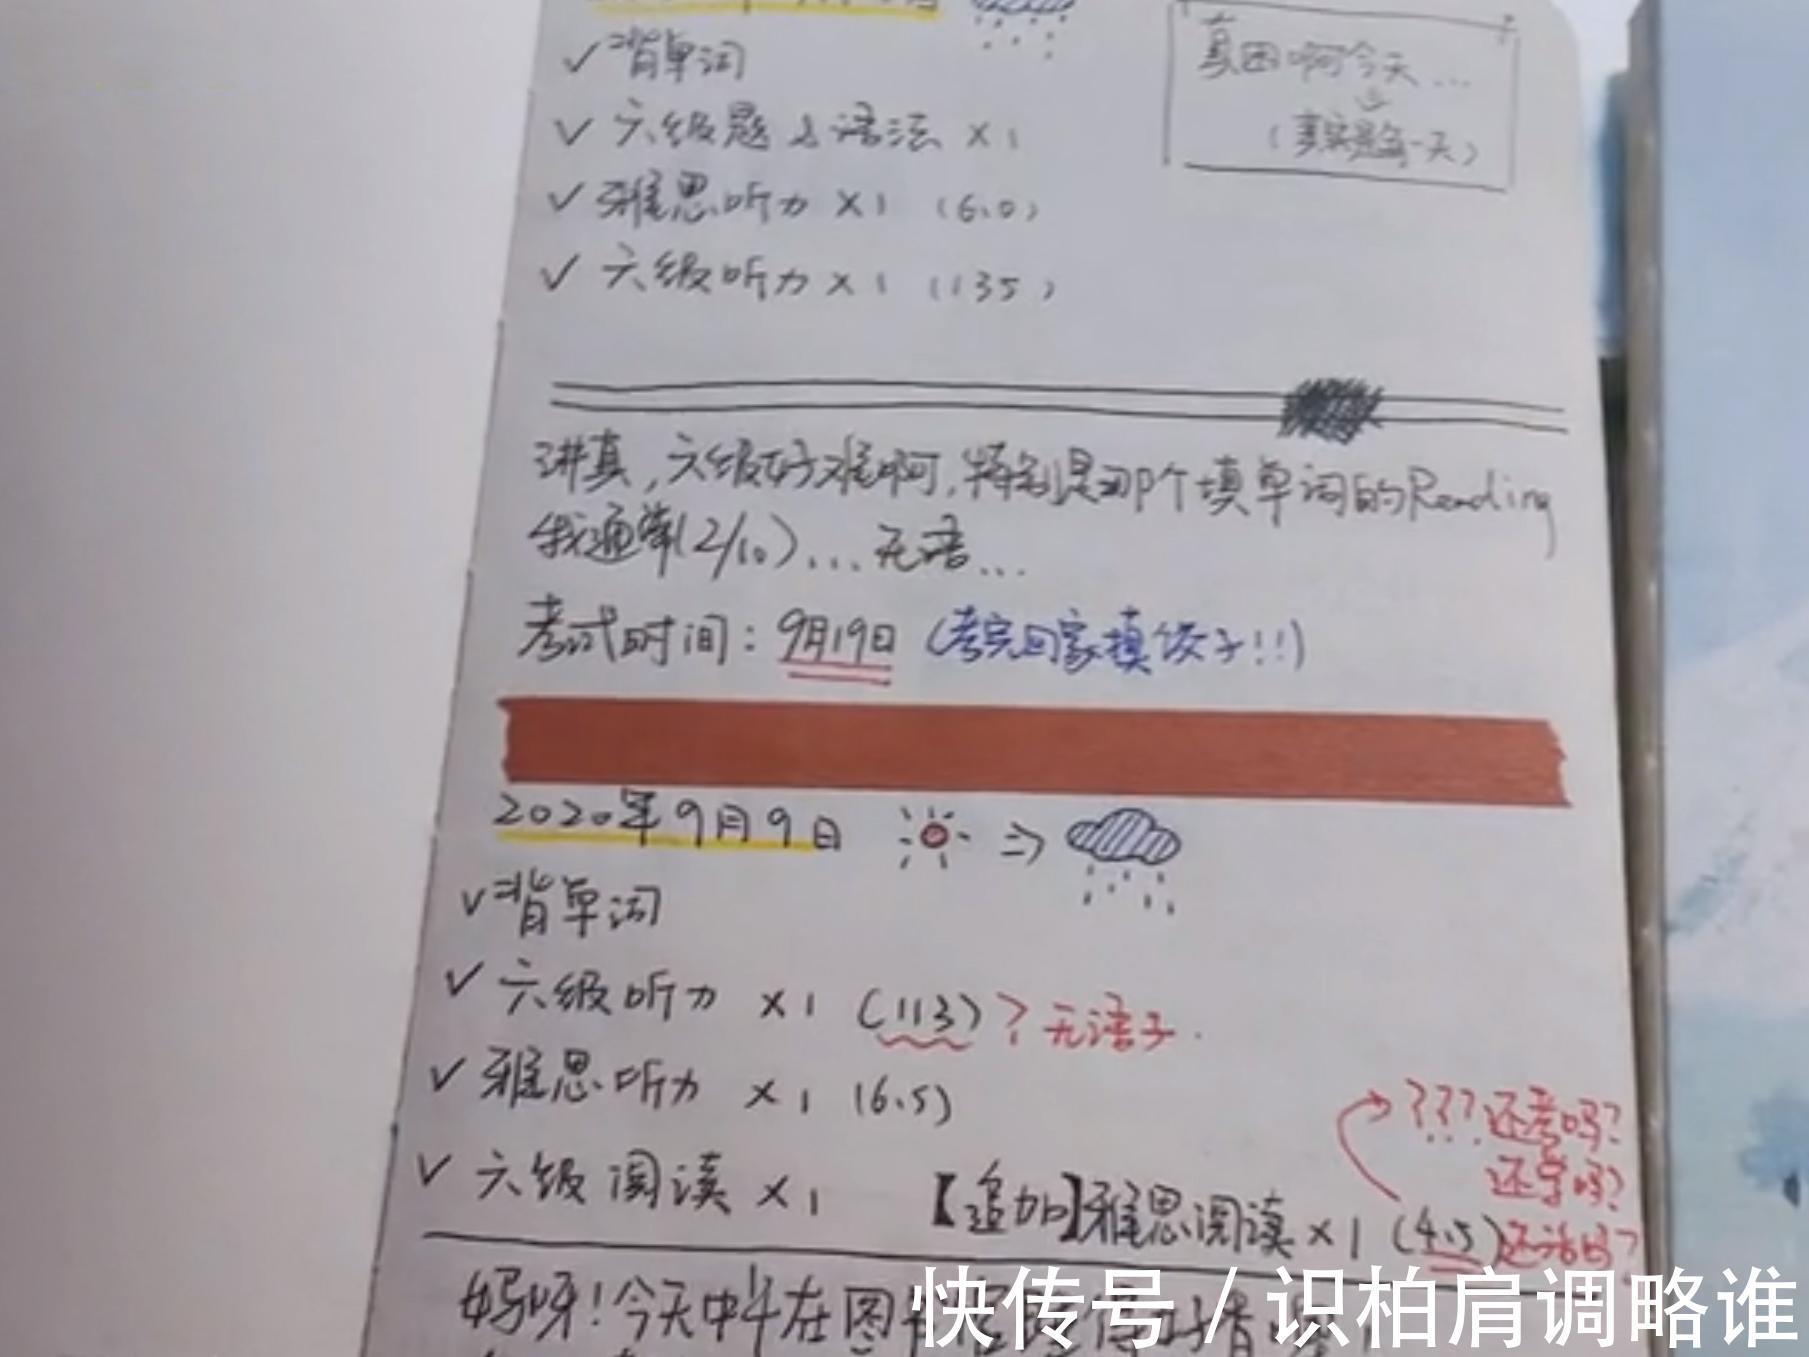 真困啊今天...
(其实是每一天)
✓ 背单词
✓ 六级题之语法 ×1
✓ 雅思听力 ×1 (6.0)
✓ 六级听力 ×1 (135)
讲真,六级好难啊,特别是那个填单词的Reading
我通常(2/10)...无语...
考试时间:9月19日(考完回家填饺子!!)
2020年9月9日
✓ 背单词
✓ 六级听力 ×1 (113)?无语子.
✓ 雅思听力 ×1 (6.5)
✓ 六级阅读 ×1 【追加】雅思阅读×1 (4.5)
???还考吗?
还学吗?
还活吗?
妈呀!今天中午在图
快传号/识柏肩调略谁